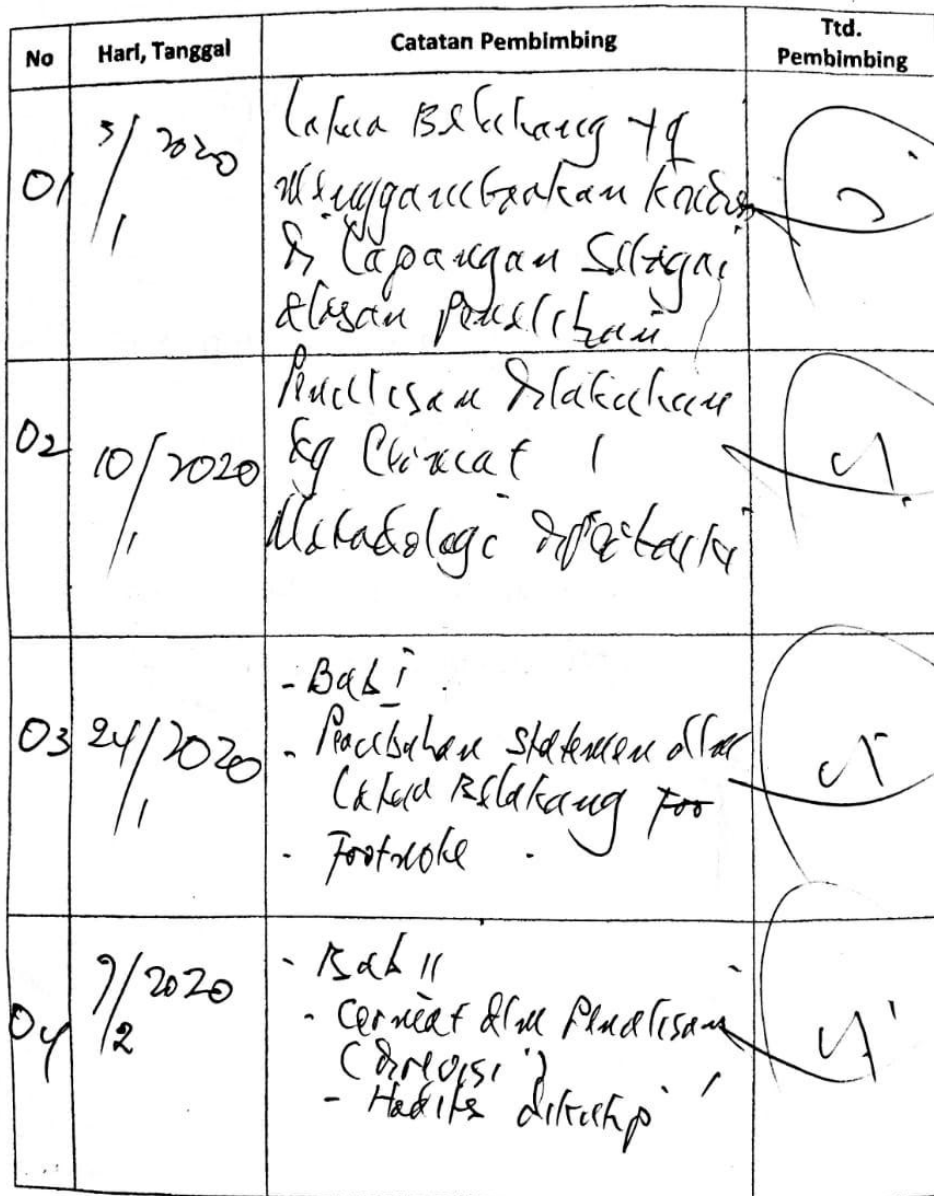 No Hari, Tanggal Catatan Pembimbing Ttd. Pembimbing
01 3/1 2020 Latar Belakang yg
menggambarkan kondisi
di lapangan sebagai
alasan penelitian
02 10/1 2020 Penulisan dilakukan
dg cermat
Metodologi diperbaiki
03 24/1 2020 - Bab I
- Penambahan statemen dlm
Latar Belakang
- Footnote
04 7/2 2020 - Bab II
- Cermat dlm Penulisan
(direvisi)
- Hadits dikutip